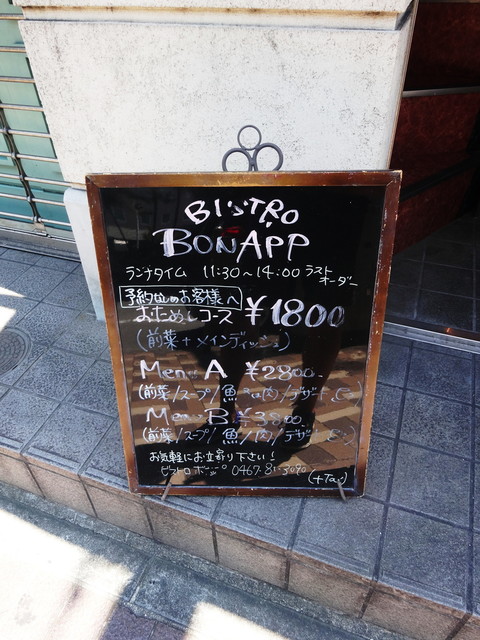 BISTRO
BONAPP
ランチタイム 11:30～14:00 ラストオーダー
予約なしのお客様へ
おためしコース ¥1800
(前菜+メインディッシュ)
Menu A ¥2800.
(前菜/スープ/魚 又は 肉/デザート
Menu B ¥3800.
(前菜/スープ/魚/肉/デザート
お気軽にお立寄り下さい!
ビストロ ボナップ 0467-81-3090
(+Tax)